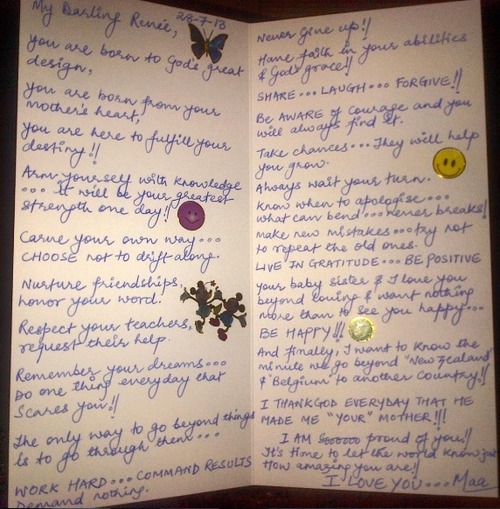 My Darling Renée, 28-7-13
you are born to God's great
design,
you are born from your
mother's heart,
you are here to fulfill your
destiny!!
Arm yourself with knowledge
... It will be your greatest
strength one day!!
Carve your own way...
CHOOSE not to drift along.
Nurture friendships,
honor your word.
Respect your teachers,
request their help.
Remember your dreams...
Do one thing everyday that
Scares you!!
The only way to go beyond things
Is to go through them...
WORK HARD... COMMAND RESULTS
Demand nothing.
Never give up!!
Have faith in your abilities
& God's grace!!
SHARE... LAUGH... FORGIVE!!
Be AWARE of courage and you
will always find it.
Take chances... They will help
you grow.
Always wait your turn.
Know when to apologise...
what can bend... never breaks!
make new mistakes... try not
to repeat the old ones.
LIVE IN GRATITUDE... BE POSITIVE
your baby sister & I love you
beyond loving & want nothing
more than to see you happy...
BE HAPPY!!!
And finally, I want to know the
minute we go beyond "New Zealand
& "Belgium" to another Country!!
I THANK GOD EVERYDAY THAT HE
MADE ME "YOUR" MOTHER!!!
I AM soooooo proud of you!!
It's time to let the world know just
How amazing you are!!
I LOVE YOU... Maa